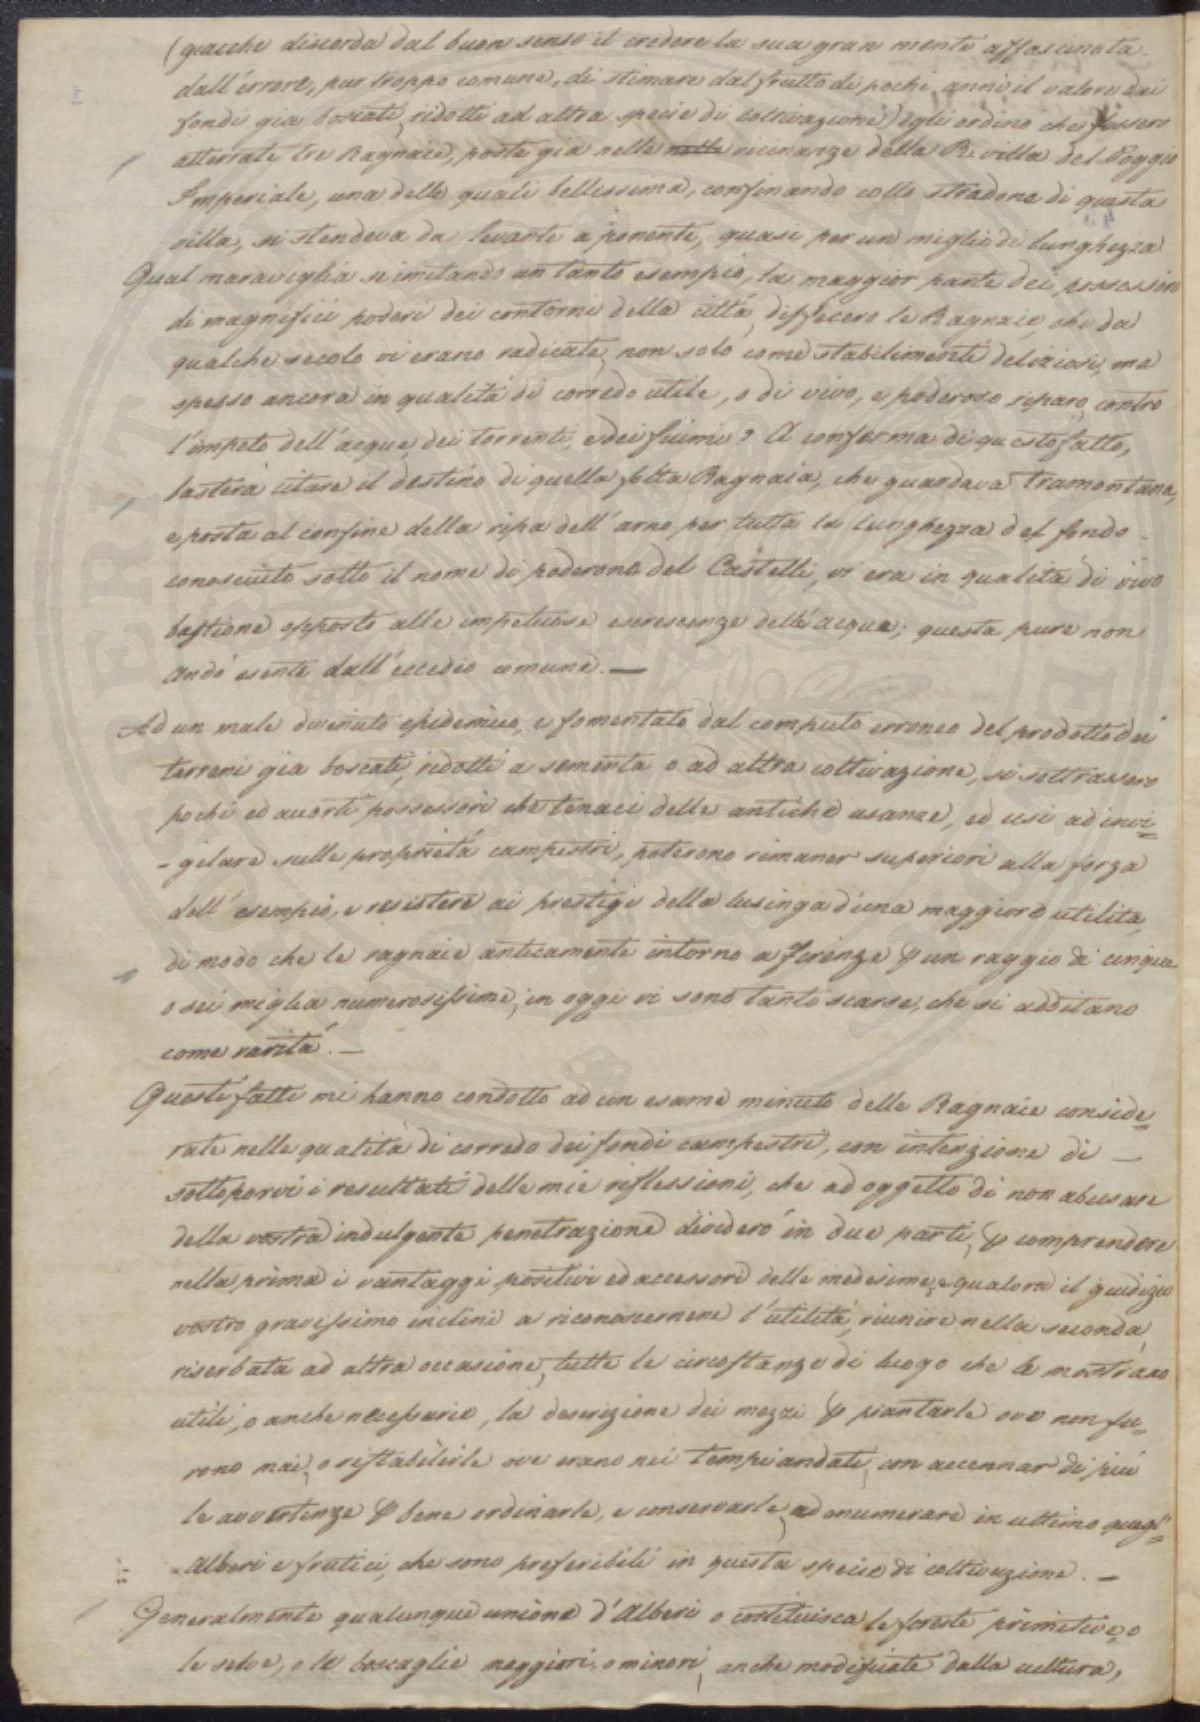 (giacche discorda dal buon senso il credere la sua gran mente affascinata
dall'errore, pur troppo comune, di stimare dal frutto di pochi anni il valore dei
fondi gia boscati, ridotti ad altra specie di coltivazione) egli ordinò che fossero
atterrate tre Ragnaie, poste gia nelle vicinanze della R. villa del Poggio
Imperiale, una delle quali bellissima, confinando collo stradone di questa
villa, si stendeva da levante a ponente, quasi per un miglio di lunghezza
Qual maraviglia se imitando un tanto esempio, la maggior parte dei possessori
di magnifici poderi dei contorni della città, disfecero le Ragnaie, che da
qualche secolo vi erano radicate, non solo come stabilimenti deliziosi, ma
spesso ancora in qualità di corredo utile, o di vivo, e poderoso riparo contro
l'impeto dell'acque dei torrenti, e dei fiumi? A conferma di questo fatto,
basterà citare il destino di quella folta Ragnaia, che guardava Tramontana,
e posta al confine della ripa dell'arno per tutta la lunghezza del fondo
conosciuto sotto il nome di poderone del Castelli, vi era in qualità di vivo
bastione opposto alle impetuose escrescenze dell'acque; questa pure non
andò esente dall'eccidio comune. —
Ad un male divenuto epidemico, e fomentato dal computo erroneo del prodotto dei
terreni già boscati, ridotti a sementa o ad altra coltivazione, si sottrassero
pochi ed accorti possessori che tenaci delle antiche usanze, ed usi ad invi=
-gilare sulle proprietà campestri, poterono rimaner superiori alla forza
dell'esempio, e resistere ai prestigi della lusinga d'una maggiore utilità,
di modo che le ragnaie anticamente intorno a Firenze p un raggio di cinque
o sei miglia numerosissime, in oggi vi sono tanto scarse, che si additano
come rarità. —
Questi fatti mi hanno condotto ad un esame minuto delle Ragnaie conside=
rate nelle qualità di corredo dei fondi campestri, con intenzione di —
sottoporvi i resultati delle mie riflessioni, che ad oggetto di non abusare
della vostra indulgente penetrazione dividerò in due parti, p comprendere
nella prima i vantaggi positivi ed accessori delle medesime, e qualora il giudizio
vostro gravissimo inclini a riconoscernene l'utilità, riunire nella seconda,
riserbata ad altra occasione, tutte le circostanze di luogo che le mostrano
utili, o anche necessarie, la descrizione dei mezzi p piantarle ove non fu=
rono mai, o ristabilirle ove erano nei tempi andati, con accennar di più
le avvertenze p bene ordinarle, e conservarle, ad enumerare in ultimo quegl'=
-Alberi e frutici, che sono preferibili in questa specie di coltivazione. —
Generalmente qualunque unione d'Alberi o costituisca le foreste primitive, o
le selve, o le boscaglie maggiori, o minori, anche modificate dalla cultura,